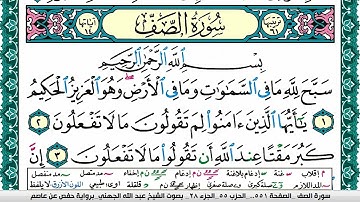 سُورَةُ الصَّفِّ
بِسْمِ اللَّهِ الرَّحْمَٰنِ الرَّحِيمِ
سَبَّحَ لِلَّهِ مَا فِي السَّمَاوَاتِ وَمَا فِي الْأَرْضِ وَهُوَ الْعَزِيزُ الْحَكِيمُ
١ يَا أَيُّهَا الَّذِينَ آمَنُوا لِمَ تَقُولُونَ مَا لَا تَفْعَلُونَ ٢
كَبُرَ مَقْتًا عِندَ اللَّهِ أَن تَقُولُوا مَا لَا تَفْعَلُونَ ٣ إِنَّ
سورة الصف _ الصفحة ٥٥١_ الحزب ٥٥_ الجزء ٢٨_ بصوت الشيخ عبد الله الجهني_ برواية حفص عن عاصم